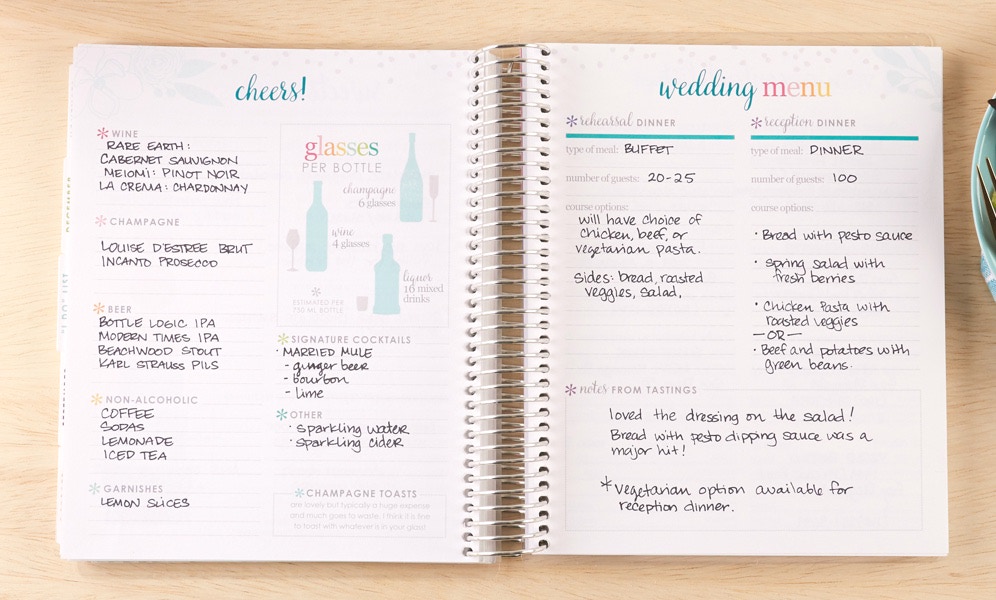 cheers!
* WINE
RARE EARTH:
CABERNET SAUVIGNON
MEIOMI: PINOT NOIR
LA CREMA: CHARDONNAY
* CHAMPAGNE
LOUISE D'ESTREE BRUT
INCANTO PROSECCO
* BEER
BOTTLE LOGIC IPA
MODERN TIMES IPA
BEACHWOOD STOUT
KARL STRAUSS PILS
* NON-ALCOHOLIC
COFFEE
SODAS
LEMONADE
ICED TEA
* GARNISHES
LEMON SLICES
glasses
PER BOTTLE
champagne
6 glasses
wine
4 glasses
liquer
16 mixed
drinks
*
ESTIMATED PER
750 ML BOTTLE
* SIGNATURE COCKTAILS
• MARRIED MULE
- ginger beer
- bourbon
- lime
* OTHER
• sparkling water
• sparkling cider
* CHAMPAGNE TOASTS
are lovely but typically a huge expense
and much goes to waste. I think it is fine
to toast with whatever is in your glass!
wedding menu
* rehearsal DINNER
type of meal: BUFFET
number of guests: 20-25
course options:
will have choice of
chicken, beef, or
vegetarian pasta.
Sides: bread, roasted
veggies, salad,
* reception DINNER
type of meal: DINNER
number of guests: 100
course options:
• Bread with pesto sauce
• spring salad with
fresh berries
• Chicken Pasta with
roasted veggies
—OR—
• Beef and potatoes with
green beans.
* notes FROM TASTINGS
loved the dressing on the salad!
Bread with pesto dipping sauce was a
major hit!
* Vegetarian option available for
reception dinner.